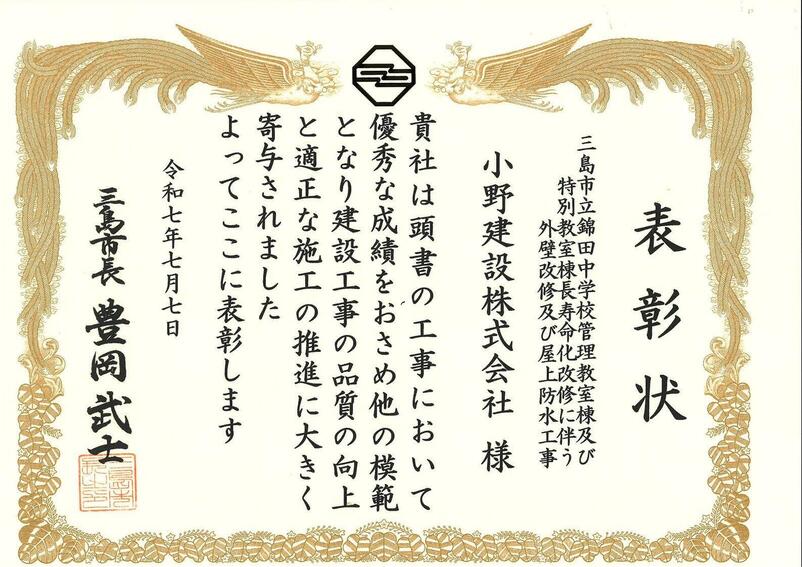 表彰状
三島市立錦田中学校管理教室棟及び
特別教室棟長寿命化改修に伴う
外壁改修及び屋上防水工事
小野建設株式会社 様
貴社は頭書の工事において
優秀な成績をおさめ他の模範
となり建設工事の品質の向上
と適正な施工の推進に大きく
寄与されました
よってここに表彰します
令和七年七月七日
三島市長 豊岡武士